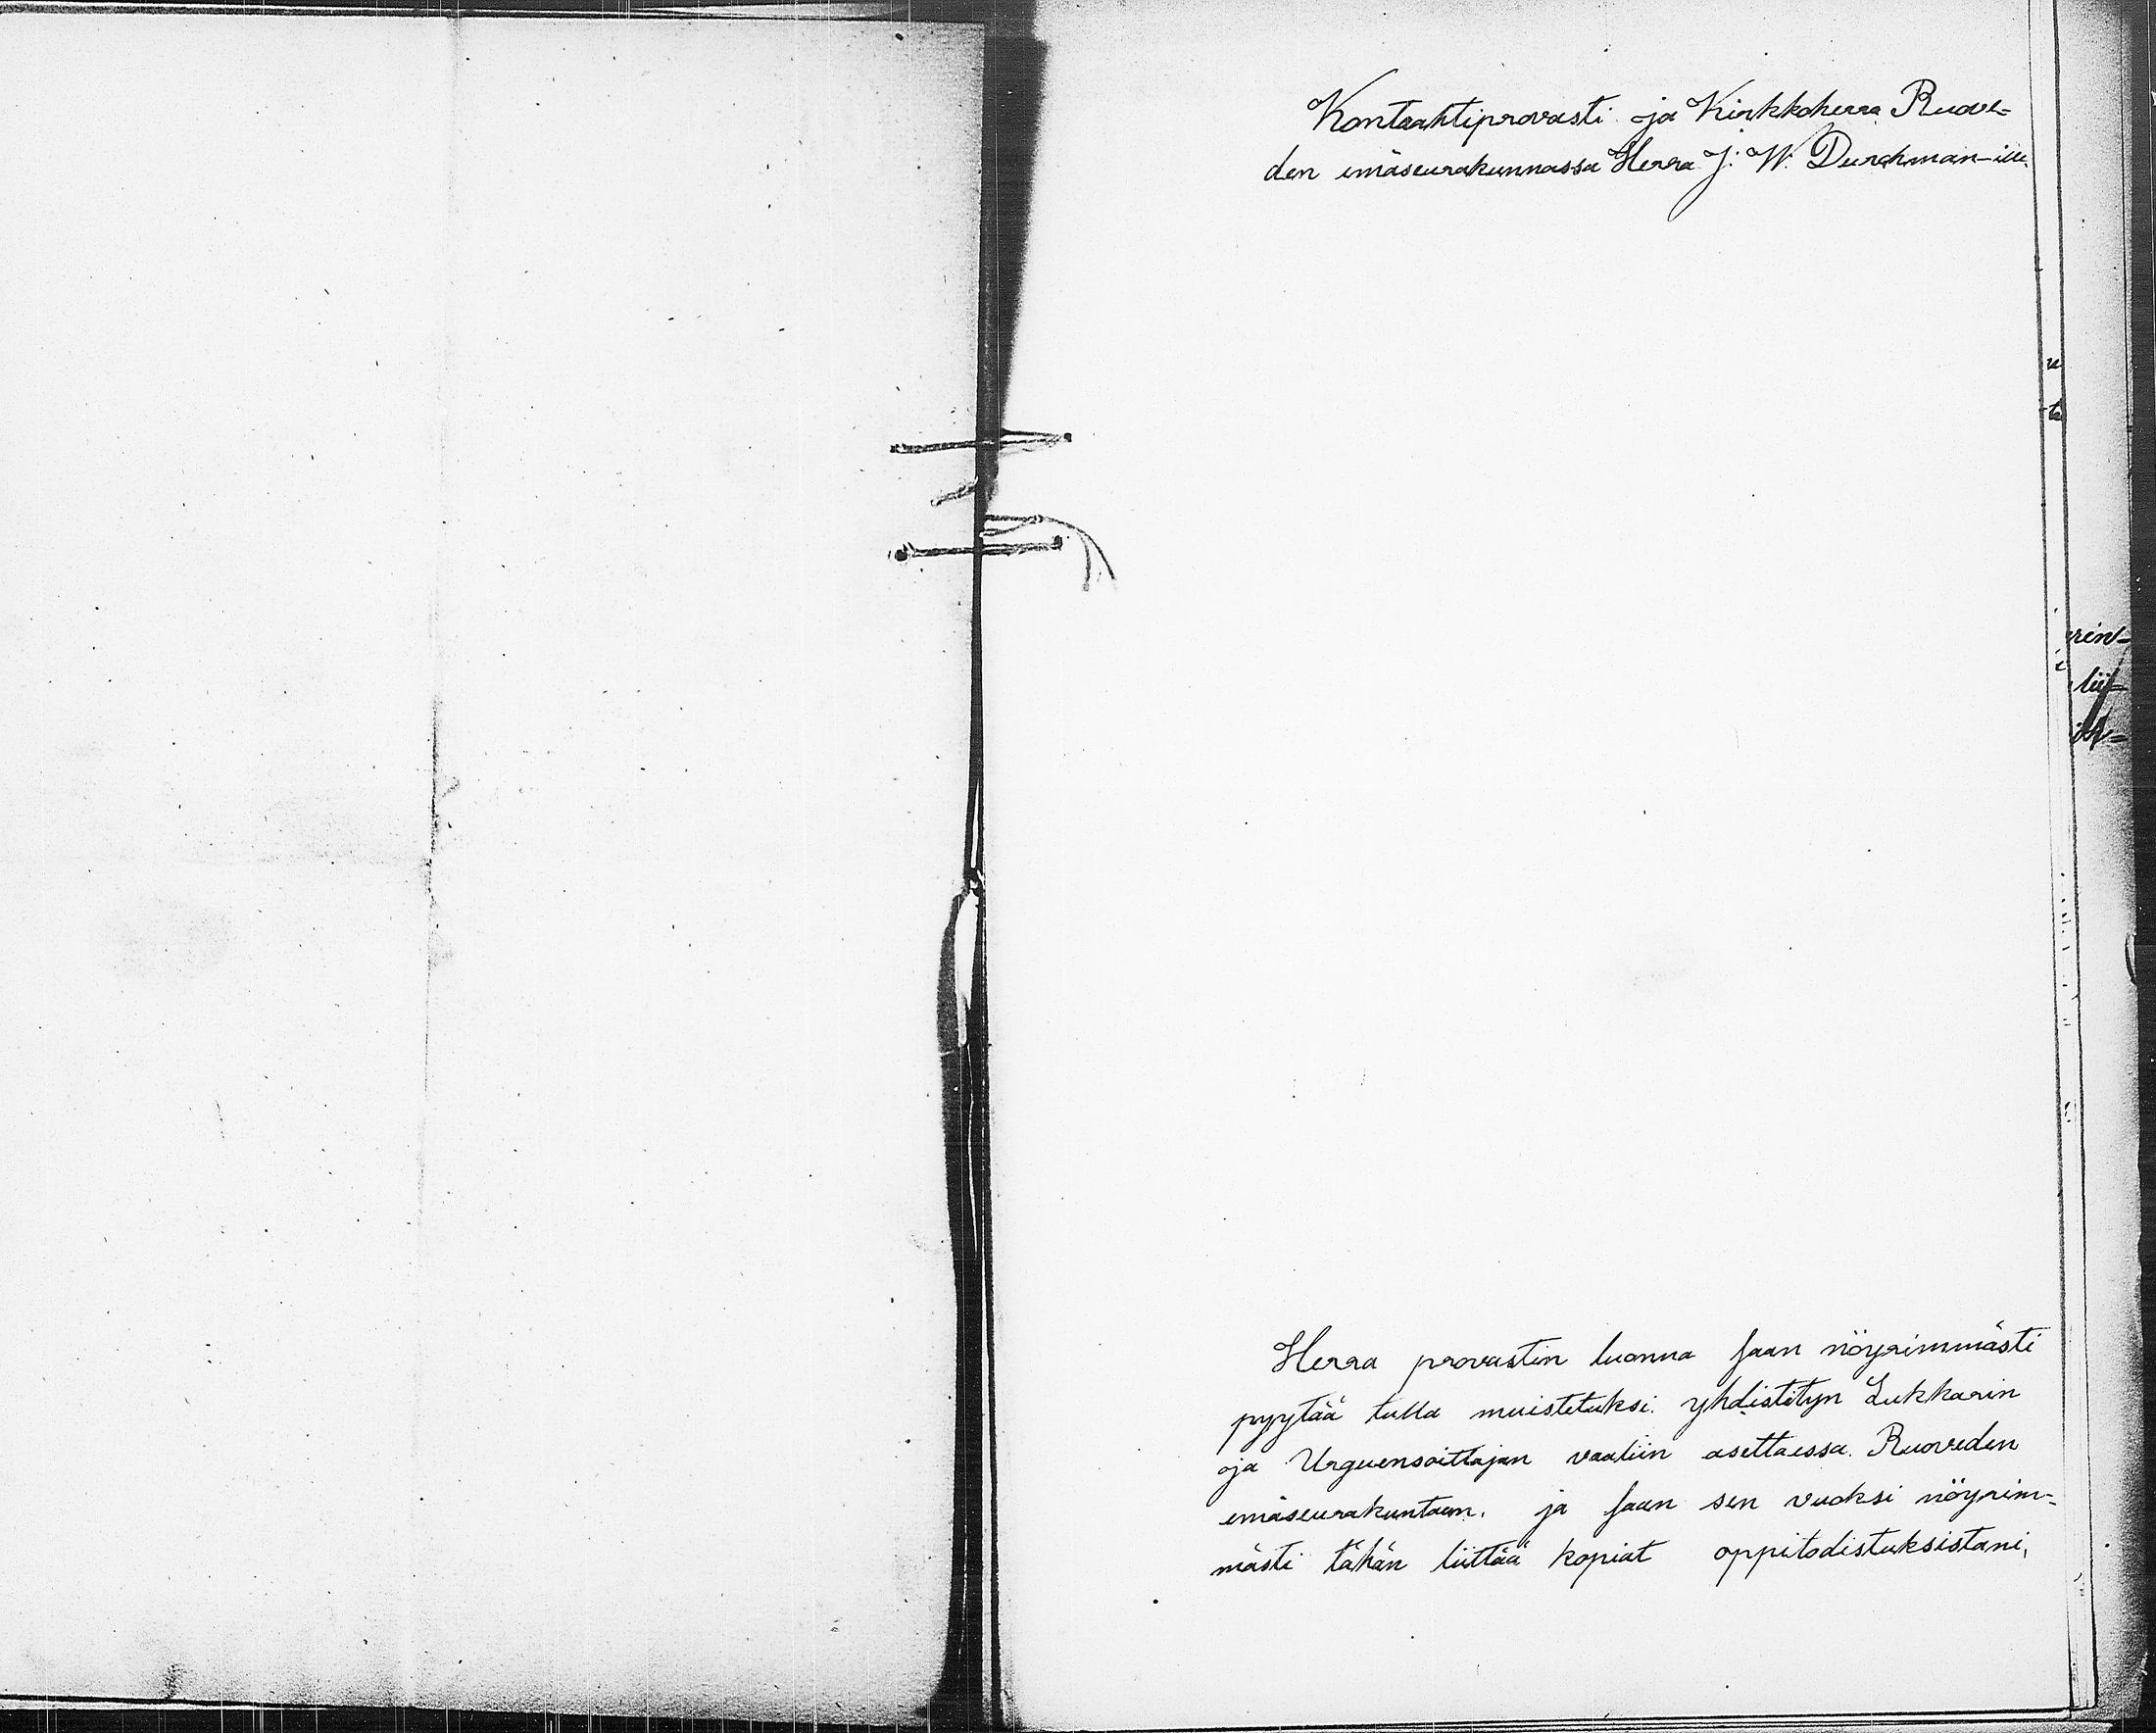 Kontrahtiprovasti ja Kirkkoherra Ruove-
den emäseurakunnassa Herra J: W. Durchman-ille.
u
ta
rin-
lii-
Herra provastin luonna saan nöyrimmästi
pyytää tulla muistetuksi yhdistetyn Lukkarin
ja Urguensoittajan vaaliin asettaessa Ruoveden
emäseurakuntaan, ja saan sen vuoksi nöyrim-
mästi tähän liittää kopiat oppitodistuksistani,